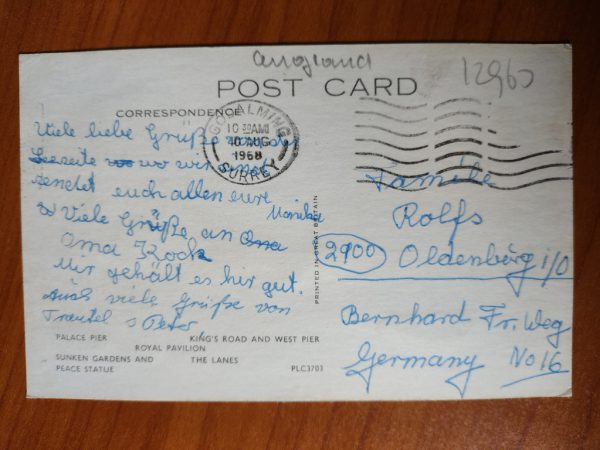 England
12960
POST CARD
CORRESPONDENCE
GODALMING
10 30 AM
10 AUG
1968
SURREY
Viele liebe Grüße
Seeseite wo wir
sendet euch allen eure
Monika
Viele Grüße an Oma
Oma Kock
Mir gehält es hir gut.
Auch viele Grüße von
Trautel s Peter
Familie
Rolfs
2900 Oldenberg i/O
Bernhard Fr. Weg
Germany No 16
PRINTED IN GREAT BRITAIN
PALACE PIER KING'S ROAD AND WEST PIER
ROYAL PAVILION
SUNKEN GARDENS AND THE LANES
PEACE STATUE PLC3703